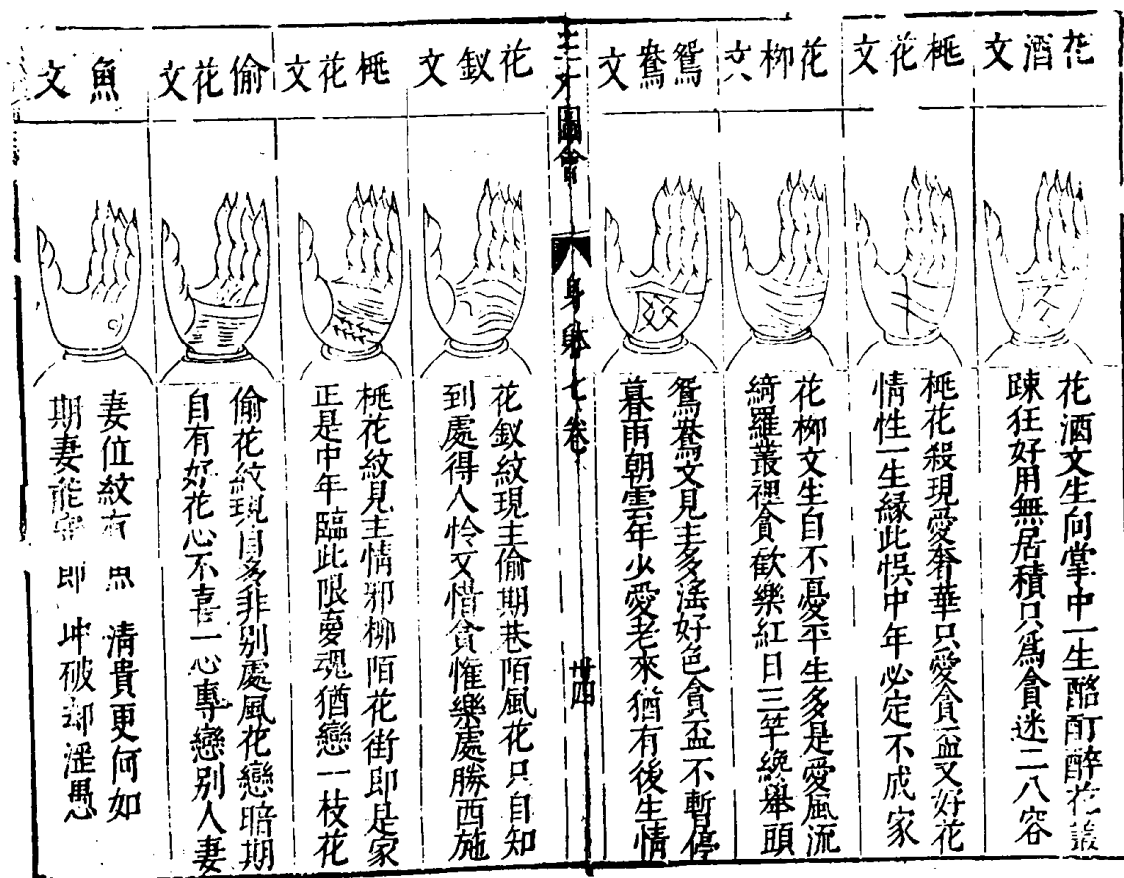 花酒文
花酒文生向掌中一生酩酊醉花叢
踈狂好用無居積只爲貪迷二八容
桃花文
桃花殺現愛奢華只愛貪盃又好花
情性一生緣此悞中年必定不成家
花柳文
花柳文生自不憂平生多是愛風流
綺羅叢裡貪歡樂紅日三竿纔舉頭
鴛鴦文
鴛鴦文見主多淫好色貪盃不暫停
暮雨朝雲年少愛老來猶有後生情
三才圖會
身體七卷
卅四
花釵文
花釵紋現主偷期巷陌風花只自知
到處得人怜又惜貪懽樂處勝西施
桃花文
桃花紋見主情邪柳陌花街即是家
正是中年臨此限夢魂猶戀一枝花
偷花文
偷花紋現自多非別處風花戀暗期
自有好花心不喜一心專戀別人妻
魚文
妻位紋有 清貴更何如
期妻能 即 坤破却淫愚